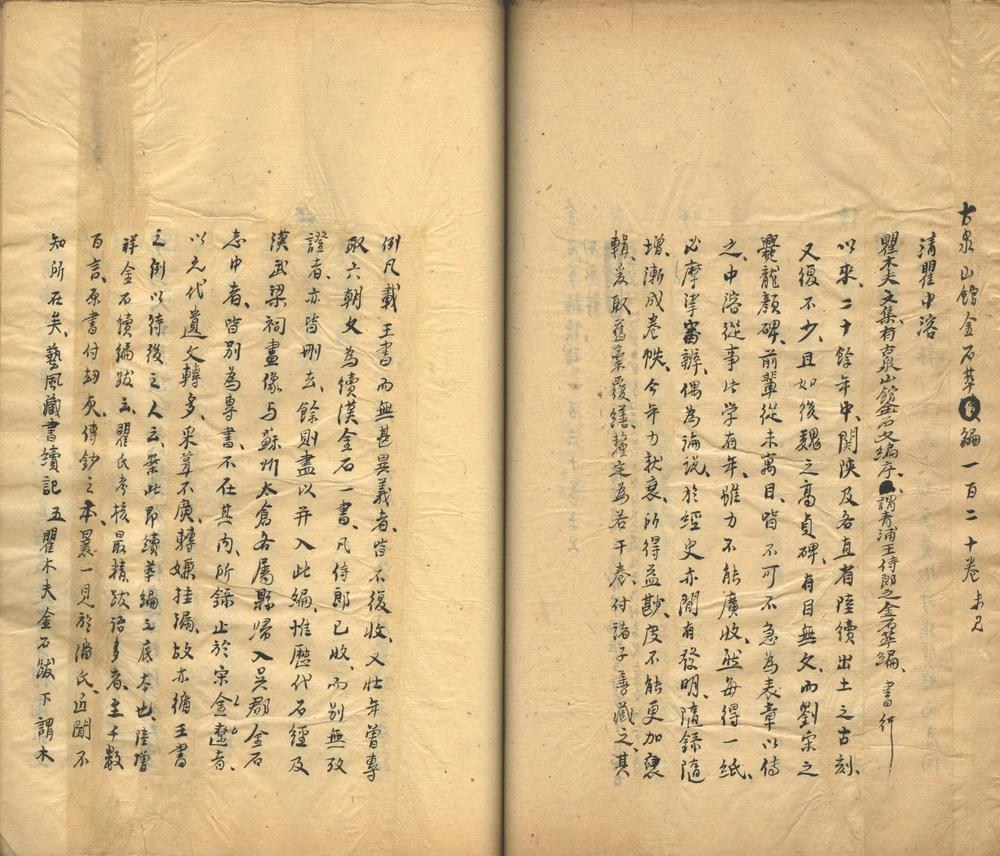 古泉山館金石萃編一百二十卷 未見
清瞿中溶
瞿木夫文集有古泉山館金石文編序、謂青浦王侍郎之金石萃編、書行
以來、二十餘年中、関陜及各直省陸續出土之古刻、
又復不少、且如後魏之高貞碑、有目無文、而劉宋之
爨龍顏碑、前輩從未寓目、皆不可不急為表章以傳
之、中溶從事此学有年、雖力不能廣收、然每得一紙、
必摩挲審辨、偶為論說、於經史亦間有發明、隨錄隨
增、漸成卷帙、今年力就衰、所得益尟、度不能更加裒
輯、爰取舊稾覆繕、釐定為若干卷、付諸子善藏之、其
例凡載王書而無甚異義者、皆不復收、又壯年曾專
取六朝文為續漢金石一書、凡侍郎已收、而別無攷
證者、亦皆刪去、餘則盡以并入此編、惟歷代石經及
漢武梁祠畫像、与蘇州太倉各屬縣歸入吳郡金石
志中者、皆別為專書、不在其內、所錄止於宋金遼者、
以元代遺文轉多、采葺不廣、轉嫌挂漏、故亦循王書
之例以待後之人云、案此即續萃編之底本也、陸增
祥金石續編跋云、瞿氏考核最精、跋語多者、至千數
百言、原書付劫灰、傳鈔之本、曩一見於潘氏、近聞不
知所在矣、藝風藏書續記五瞿木夫金石跋下謂木